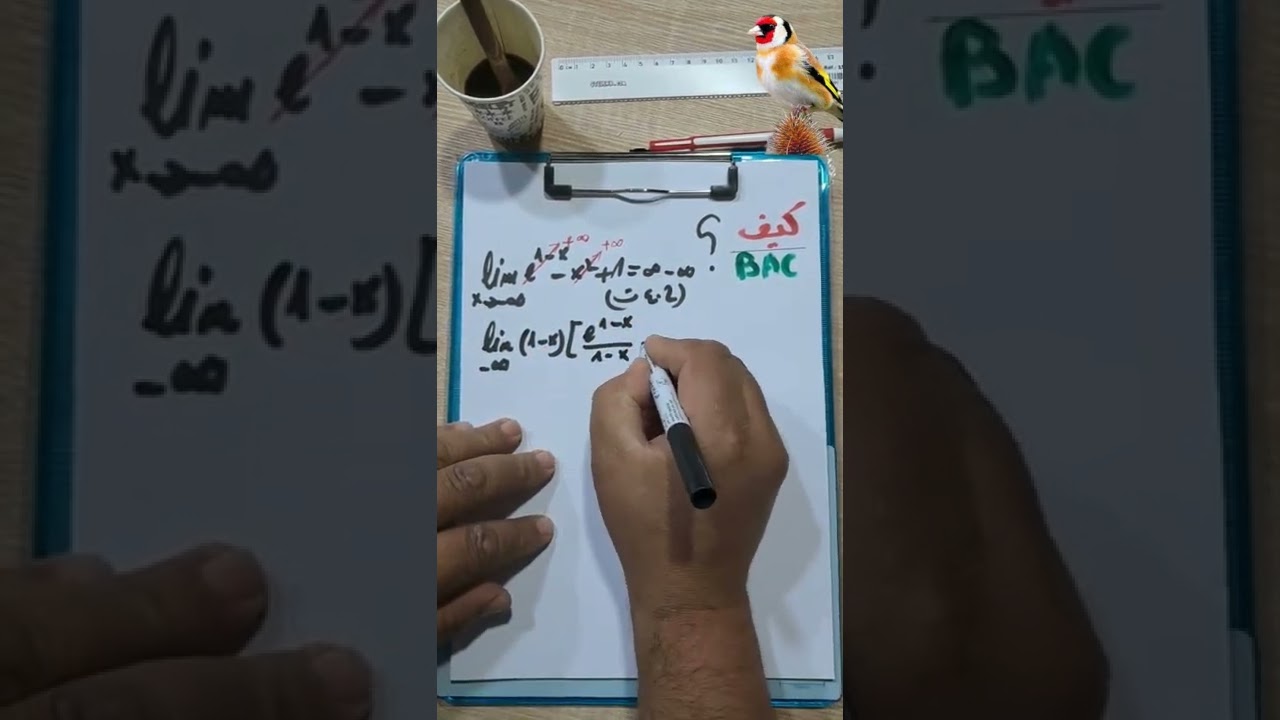 كيف ؟
BAC
lim e^{1-x} - x² + 1 = ∞ - ∞
x→-∞
+∞ +∞
(ح.ع.ت)
lim (1-x) [ e^{1-x} / 1-x
-∞